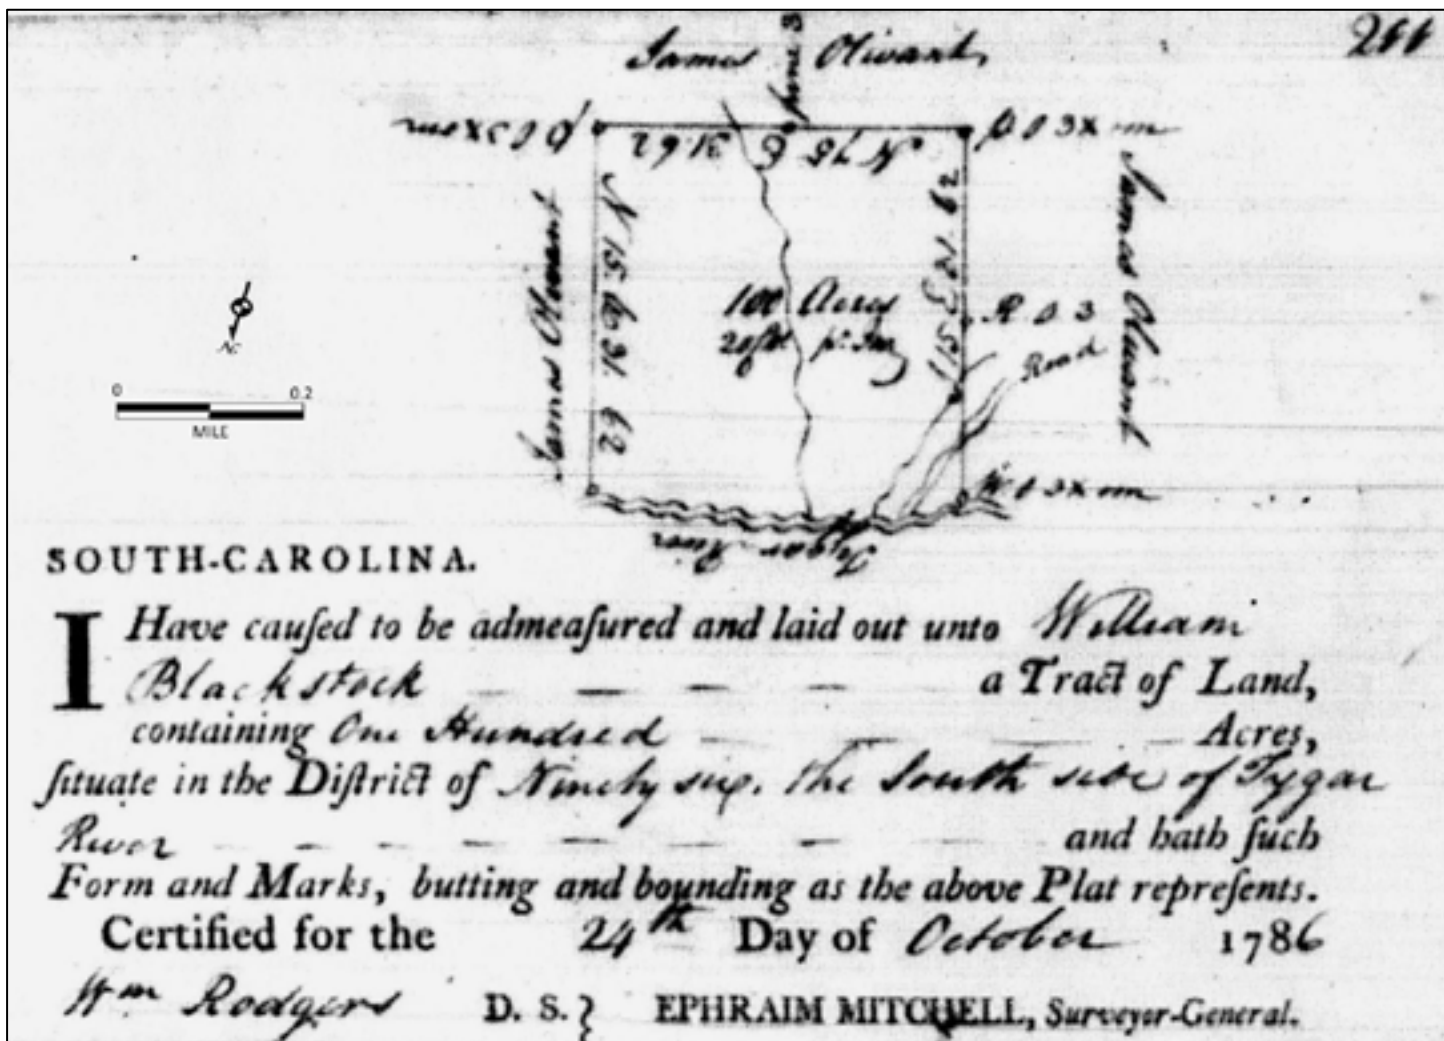 244
James Olivant
pine 3
p o 3x nm
31.62
N 75 E
p o 3x nm
James Olivant
N 15 W 31.62
100 Acres
R. O 3
Road
James Olivant
0 0.2
MILE
3x nm
Tygar River
SOUTH-CAROLINA.
I Have cauſed to be admeaſured and laid out unto William
Blackstock — — — — a Tract of Land,
containing One Hundred — — — — Acres,
ſituate in the Diſtrict of Ninety six. the South side of Tygar
River — — — — — — — and hath ſuch
Form and Marks, butting and bounding as the above Plat repreſents.
Certified for the 24th Day of October 1786
Wm Rodgers D. S.} EPHRAIM MITCHELL, Surveyor-General.